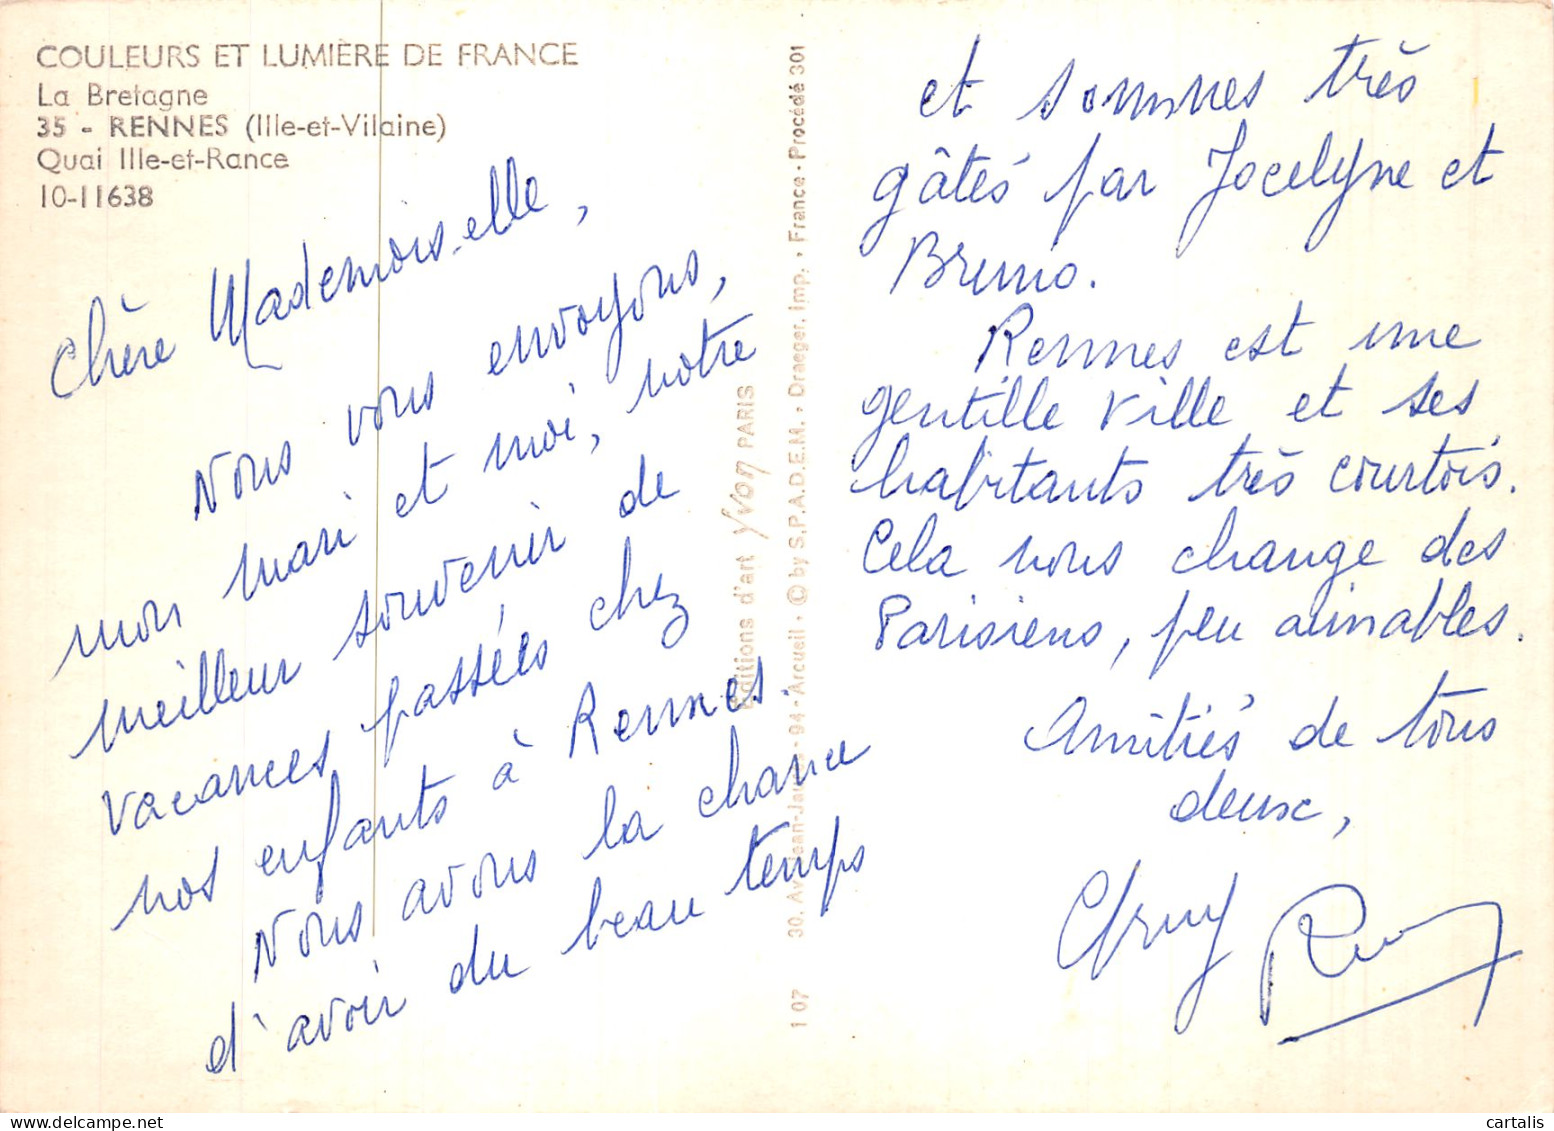 COULEURS ET LUMIÈRE DE FRANCE
La Bretagne
35 - RENNES (Ille-et-Vilaine)
Quai Ille-et-Rance
10-11638
Chère Mademoiselle,
Nous vous envoyons,
mon mari et moi, notre
meilleur souvenir de
vacances passées chez
nos enfants à Rennes.
Nous avons la chance
d'avoir du beau temps
Éditions d'art Yvon PARIS
107 30, Av. Jean-Jaurès - 94 - Arcueil - © by S.P.A.D.E.M. - Draeger, Imp. - France - Procédé 301
et sommes très
gâtés par Jocelyne et
Bruno.
Rennes est une
gentille ville et ses
habitants très courtois.
Cela nous change des
Parisiens, peu aimables.
Amitiés de tous
deux,
cartalis